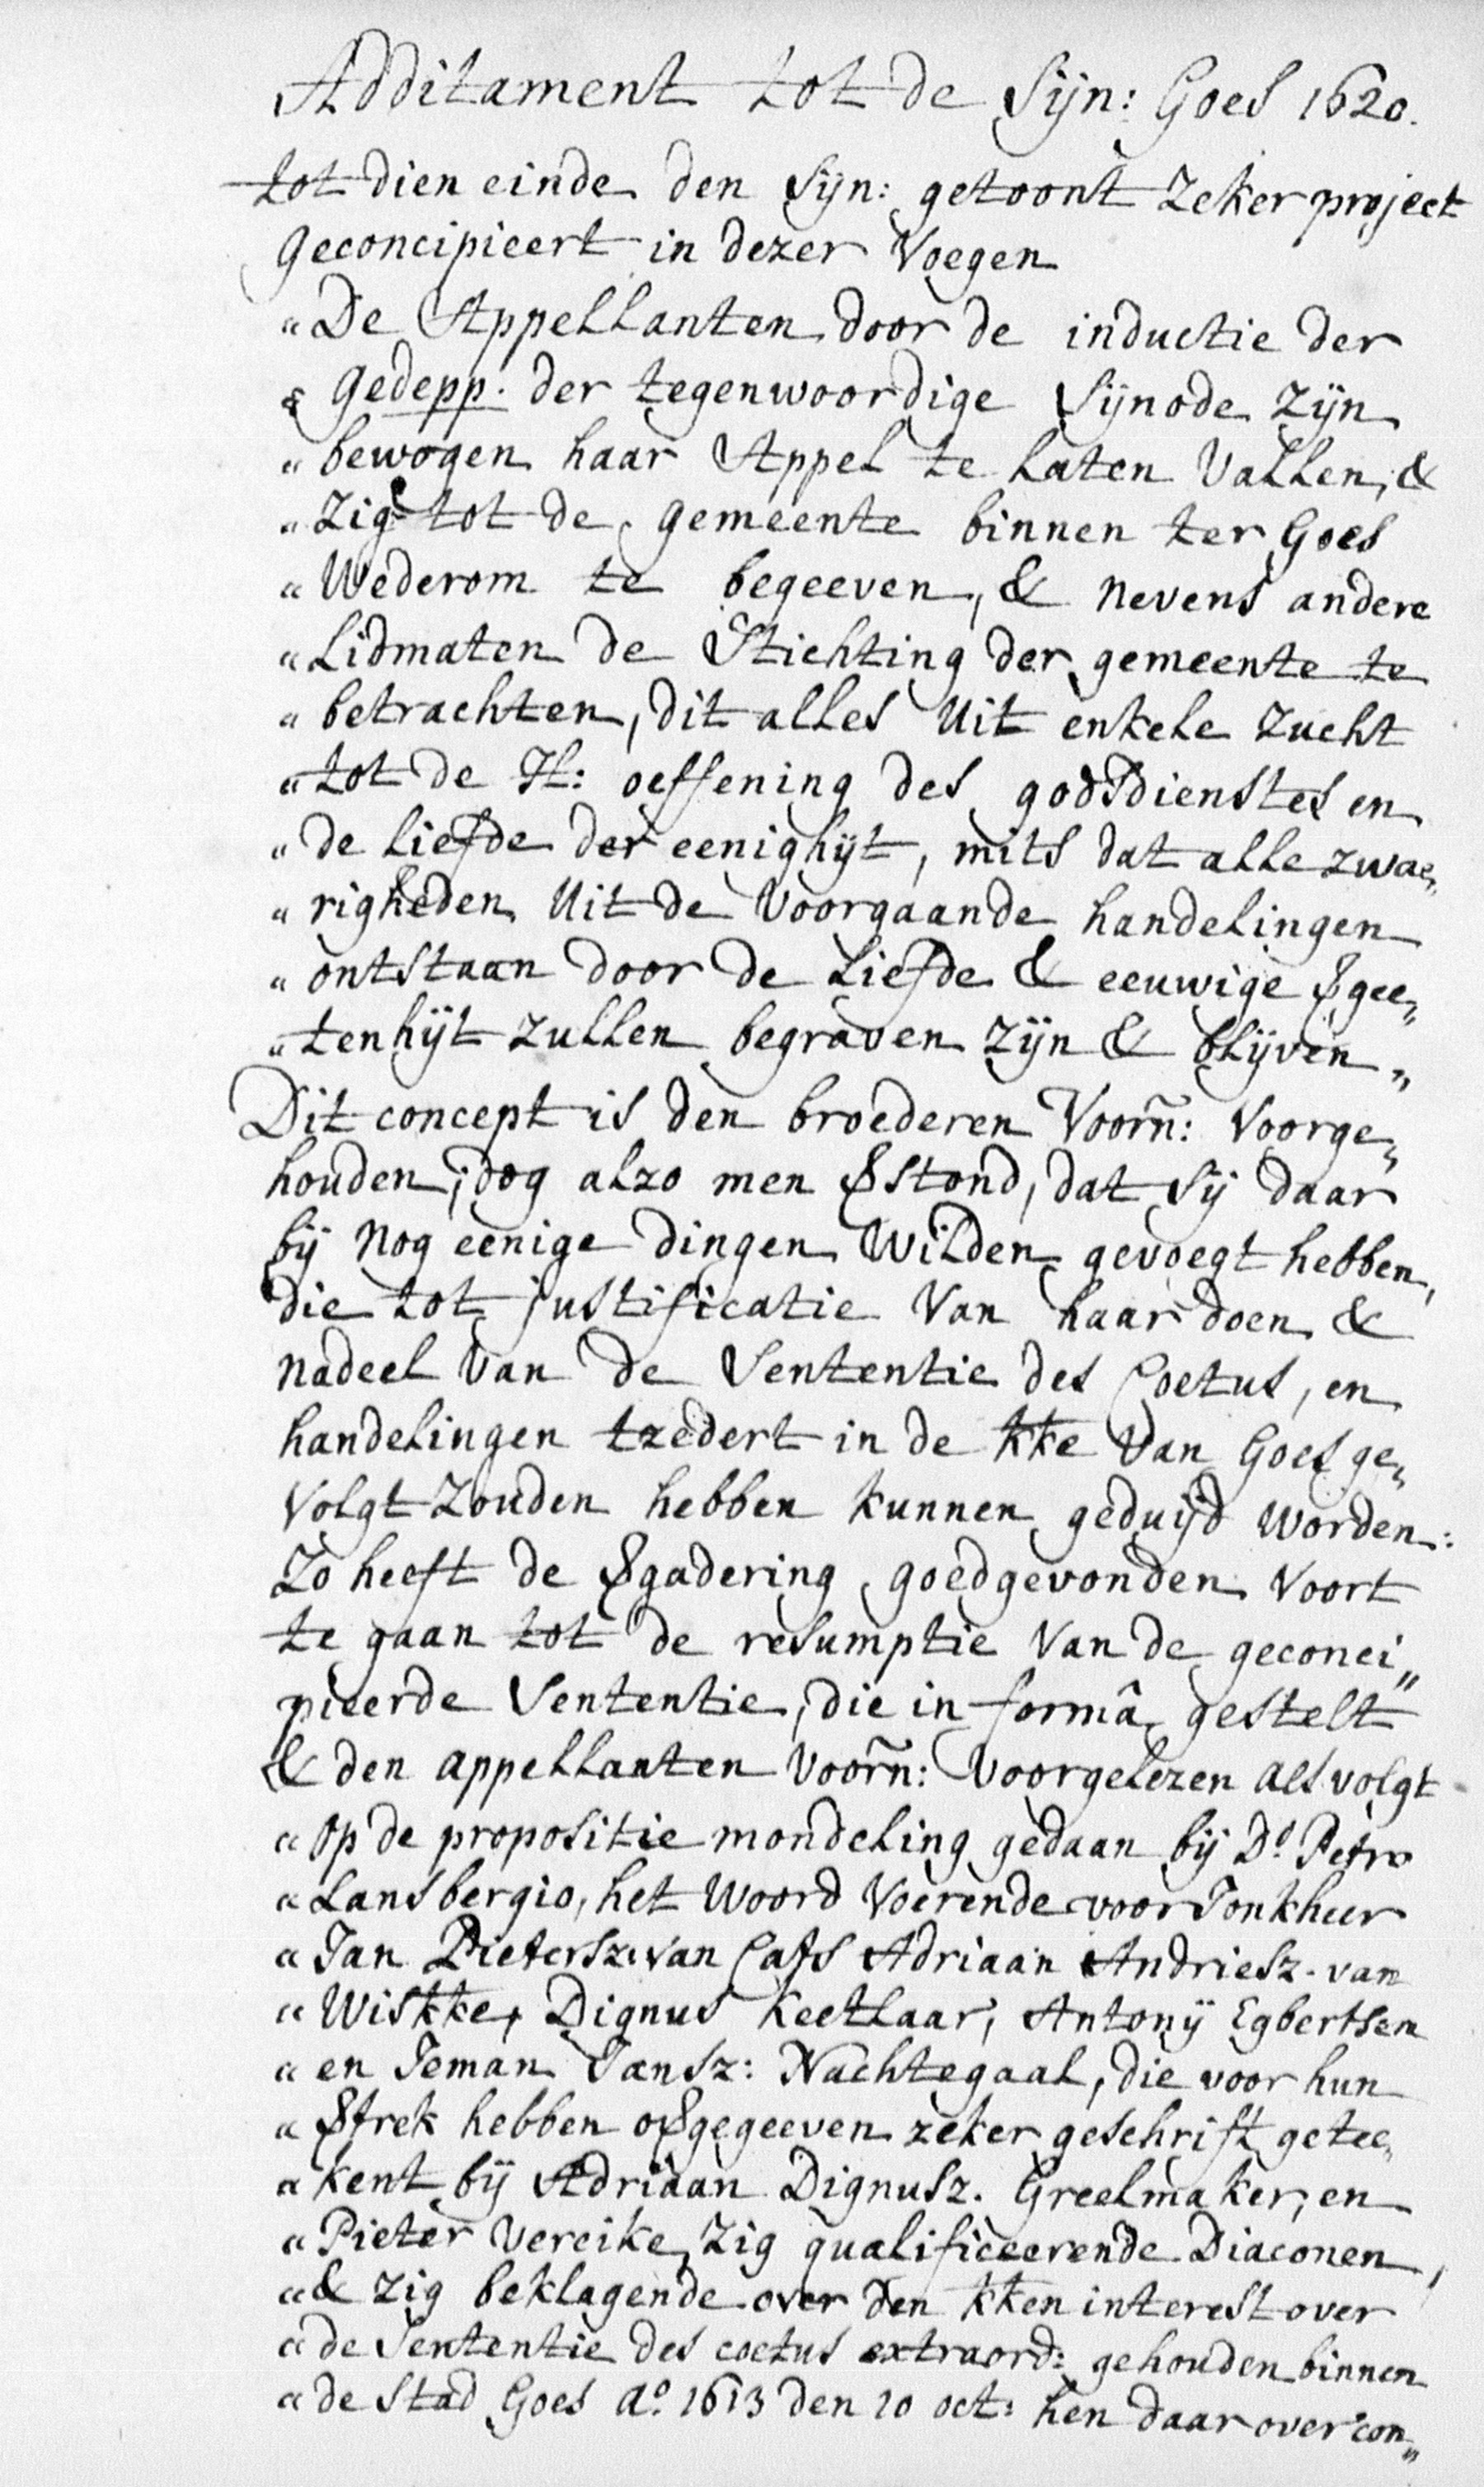 Additament tot de Sijn: Goes 1620.
tot dien einde den Sijn: getoont Zeker project
Geconcipieert in dezer Voegen
"De Appellanten door de inductie der
" Gedepp. der tegenwoordige Sijnode Zijn
" bewogen haar Appel te laten Vallen, &
" Zig tot de gemeente binnen ter Goes
" Wederom te begeeven, & nevens andere
" Lidmaten de Stichting der gemeente te
" betrachten, dit alles Uit enkele Zucht
" tot de H: oeffening des godsdienstes en
" de liefde der eenighijt, mits dat alle zwae„
" righeden Uit de Voorgaande handelingen
" ontstaan door de Liefde & eeuwige §gee„
" tenhijt Zullen begraven Zijn & blijven„
Dit concept is den broederen Voorñ: Voorge„
houden; dog alzo men §stond, dat Sij daar
bij Nog eenige dingen Wilden gevoegt hebben,
die tot justificatie Van haar doen &
nadeel Van de Sententie des Coetus, en
handelingen tzedert in de kke Van Goes ge„
Volgt Zouden hebben kunnen geduijd worden:
Zo heeft de §gadering goedgevonden Voort
te gaan tot de resumptie Van de geconci„
pieerde Sententie, die in formâ gestelt
& den appellanten Voorñ: Voorgelezen als volgt
" Op de propositie mondeling gedaan bij D.º Petro
" Lansbergio, het Woord Voerende voor Jonkheer
" Jan Pietersz. van Cats Adriaan Andriesz. van
" Wiskke, Dignus Keetlaar, Antonij Egbertsen
" en Jeman Jansz: Nachtegaal, die voor hun
" §trek hebben o§gegeeven zeker geschrift getee„
" kent bij Adriaan Dignusz. Greelmaker, en
" Pieter Vereike, Zig qualificeerende Diaconen,
" & Zig beklagende over den kken interest over
" de Sententie des coetus extraord: gehouden binnen
" de Stad Goes aº. 1613 den 10 oct: hen daar over con„